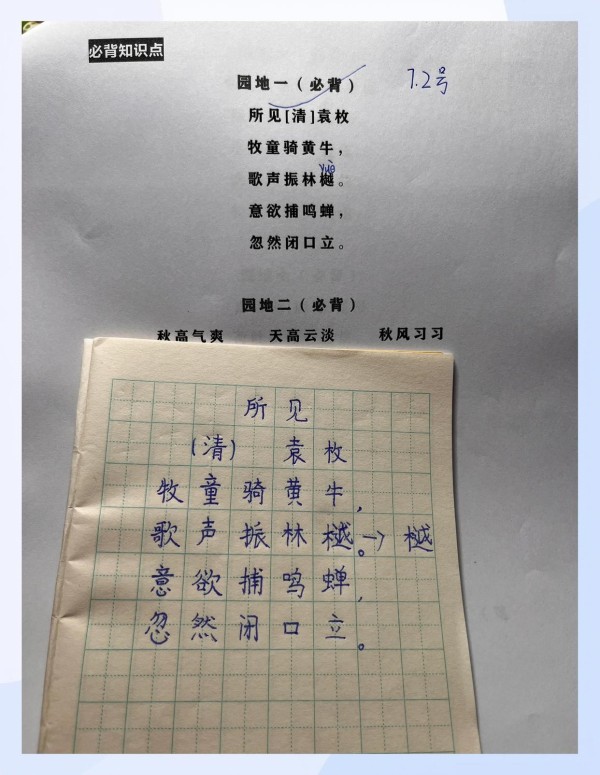 必背知识点
园地一(必背) 7.2号
所见[清]袁枚
牧童骑黄牛,
yuè
歌声振林樾。
意欲捕鸣蝉,
忽然闭口立。
园地二(必背)
秋高气爽 天高云淡 秋风习习
所见
(清) 袁枚
牧童骑黄牛,
歌声振林樾。→樾
意欲捕鸣蝉,
忽然闭口立。